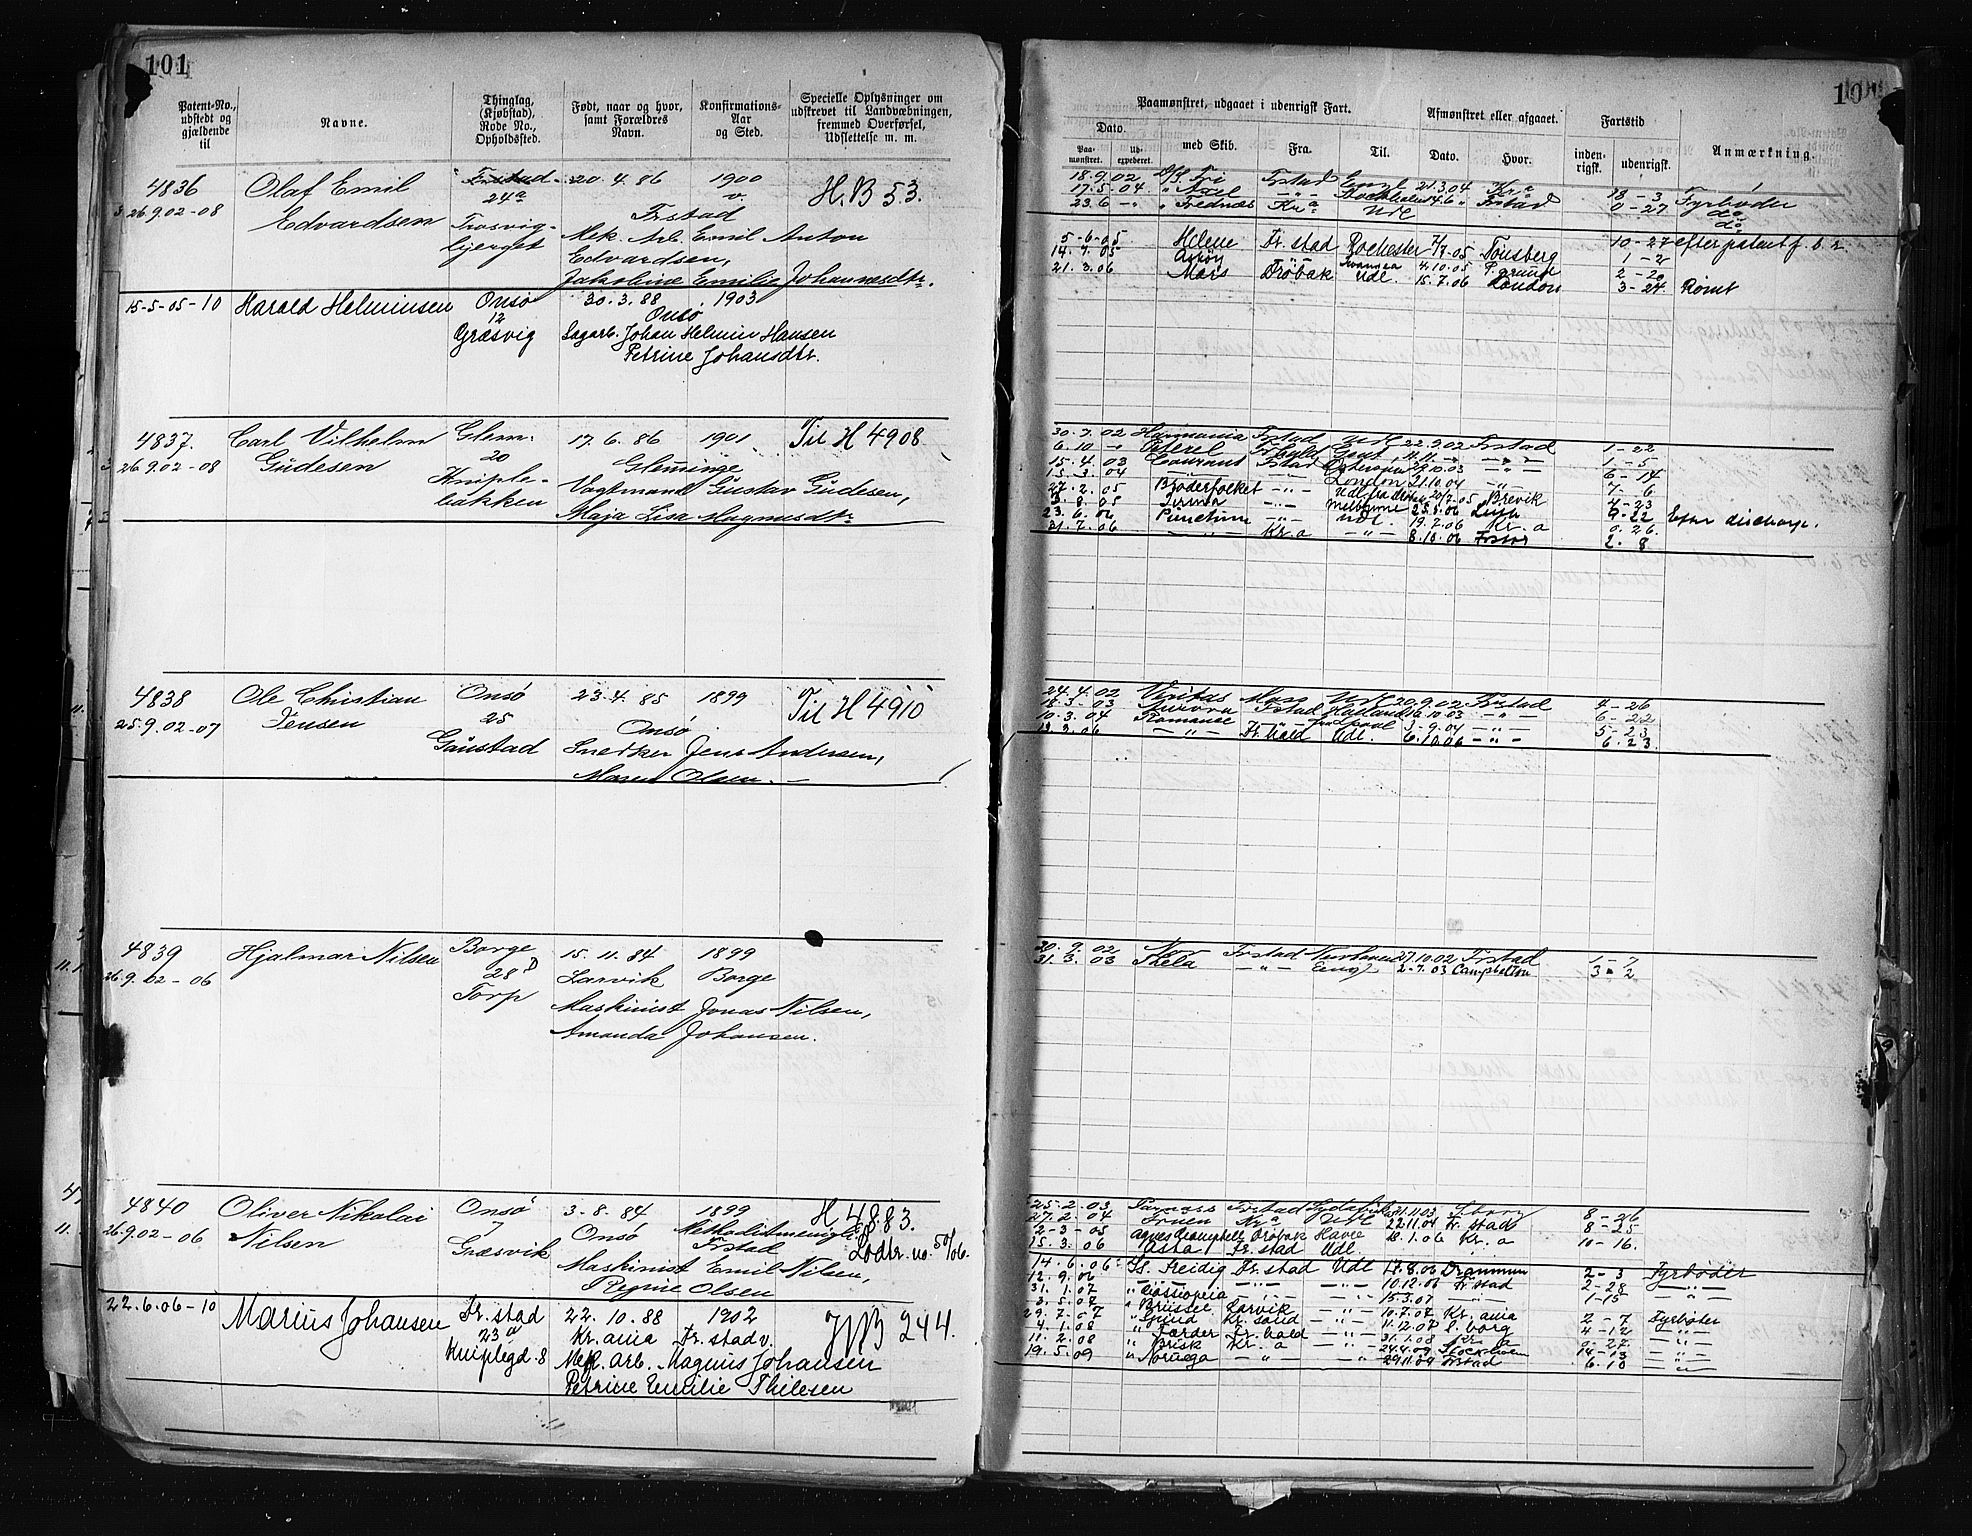 101
Patent-No., udstedt og gjældende til
Navne.
Thinglag, (Kjøbstad), Rode No., Opholdsfted.
Født, naar og hvor, samt Forældres Navn.
Konfirmations-Aar og Sted.
Specielle Oplysninger om udskrevet til Landvædningen, fremmed Overførsel, Udslettelse m. m.
4836 Olaf Emil Frstad 20.4.86 1900 H.B 53.
26.9.02-08 Edvardsen 24a Frstad v.
Trosvig- Mek. Arb. Emil Anton
bjerget Edvardsen,
Jakobine Emilie Johannesdtr.
15-5-05-10 Harald Helminsen Onsø 30.3.88 1903
12 Onsø
Græsvig Sagarb. Johan Helmin Hansen
Petrine Johansdtr.
4837. Carl Vilhelm Glem- 17.6.86 1901 Til H 4908
26.9.02-08 Gudesen 20 Glemminge
Kniple- Vagtmand Gustav Gudesen,
bakken Maja Lisa Magnusdtr
4838 Ole Christian Onsø 23.4.85 1899 Til H 4910
25.9.02-07 Jensen 25 Onsø
Gaustad Snedker Jens Andersen,
Maren Olsen.
4839 Hjalmar Nilsen Borge 15.11.84 1899
26.9.02-06 28 Larvik Borge
Torp Maskinist Jonas Nilsen,
Amanda Johansen.
4840 Oliver Nikolai Onsø 3.8.84 1899 H 4883.
26.9.02-06 Nilsen 7 Onsø Methodistmenigh.
Græsvik Frstad Lodtr. no. 50/06.
Maskinist Emil Nilsen,
Regine Olsen
22.6.06-10 Marius Johansen Fr.stad 22.10.88 1902 244.
23 a Kr.ania Fr.stad v.
Kniplegd.8 Mek. arb. Magnus Johansen
Petrine Emilie Thilesen
10
Paamønstret, udgaaet i udenrigsk Fart.
Afmønstret eller afgaaet.
Fartstid
Dato.
Paa-mønstret. Ud-expederet. med Skib. Fra. Til. Dato. Hvor. inden-rigsk. udenrigsk. Anmærkning.
18.9.02 Fri Frstad Engl 21.3.04 Kra 18-3 Fyrbøder
17.5.04 " Axel -"- Stockholm 14.6 " Frstad 0-27 do
23.6 -"- " Frednæs Kra Udl do
5-6-05 Helene Fr.stad Rochester 7/7 05 Tønsberg 10-27 efter patent f. b. r.
14.7.05 Askøy -"- Swansea 4.10.05 P.grund 1-2
21.3.06 Mars Drøbak Udl. 15.7.06 London 2-20
3-24 Rømt
30.7.02 Harmonia Frstad Udl 22.9.02 Frstad 1-22
6.10 -"- Peterel Frhald Gent 11.11.-"- -"- 1-5
15.4.03 Courant Fstad 29.10.03 -"- 6-14
15.3.04 London 21.10.04 -"- 7-6
27.2.05 Broderfolket -"- 20/7.05 Brevik 4-23
3.8.05 -"- Melbourne 25.5.06 Leith 9-22 Efter discharge.
23.6.06 Punctum -"- Udl. 19.7.06 Kr.a 0.26.
31.7.06 -"- Kr.a -"- 8.10.06 Frstad 2.8
24.4.02 Veritas Moss Udl 20.9.02 Frstad 4-26
-03 Aurora Fstad 16.10.03 -"- 6-22
10.3.04 Romanoe -"- 9.04 -"- 5-23
13.3.06 -"- Fr.hald Udl. 6.10.06 -"- 6.23.
30.9.02 Noor Frstad 27.10.02 Frstad 1-7
31.3.03 Thela -"- Engl 2-7.03 Campbelton 3-2
25.2.03 Parnass Frstad Sydafrika 21.11.03 S.borg 8-26
27.2.04 Fruen Kra Udl 22.11.04 Fr.stad 8-25
2-3-05 Agnes Campbell Drøbak Havre 18.1.06 Kr.a 10-16.
15.3.06 Asta Fr.stad Udl.
14.6.06 Ss. Heidig Fr.stad Udl 17.8.06 Drammen 2-3 Fyrbøder
12.9.06 -"- -"- -"- 10.12.06 Fr.stad 2-28 -"-
31.1.07 " Cassiopeia -"- -"- 15.3.07 -"- 1-15 -"-
3.5.07 " Brussel Larvik -"- 10.7.07 Kr.ania 2-7 Fyrbøter
29.7.07 " Gnud Kr.sand -"- 11.12.07 S.borg 4-12 -"-
4.1.08 " Færder Fr.hald -"- 31.1.08 Kr.a 0-27 -"-
11.2.08 " Brisk Kr.a -"- 24.4.09 Stockholm 14-13 -"-
19.5.09 " Noruega -"- -"- 29.11.09 Frstad 6-10 -"-